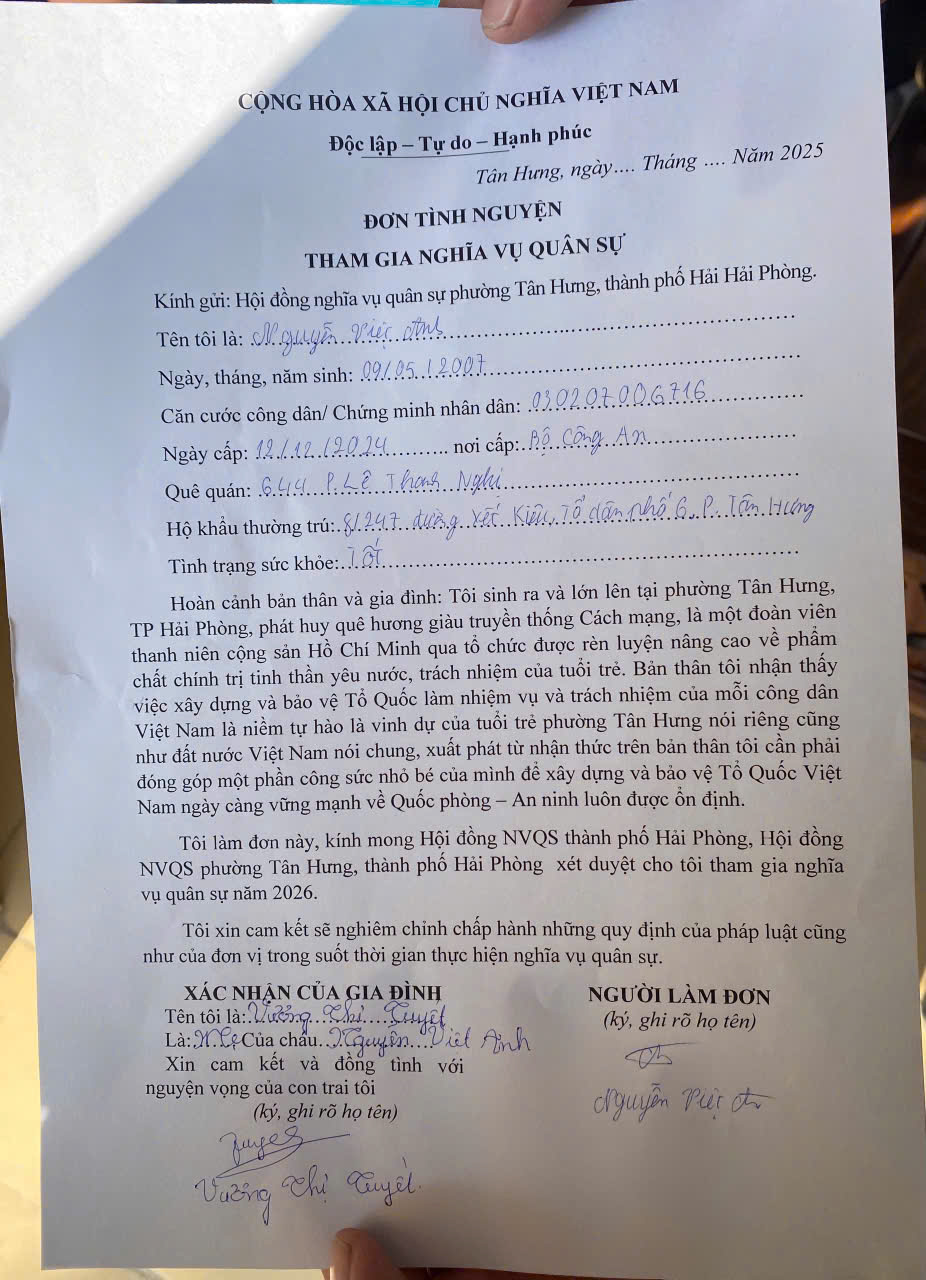 CỘNG HÒA XÃ HỘI CHỦ NGHĨA VIỆT NAM
Độc lập – Tự do – Hạnh phúc
Tân Hưng, ngày.... Tháng .... Năm 2025
ĐƠN TÌNH NGUYỆN
THAM GIA NGHĨA VỤ QUÂN SỰ
Kính gửi: Hội đồng nghĩa vụ quân sự phường Tân Hưng, thành phố Hải Hải Phòng.
Tên tôi là: Nguyễn Việt Anh
Ngày, tháng, năm sinh: 09/05/2007
Căn cước công dân/ Chứng minh nhân dân: 030207006716
Ngày cấp: 12/12/2024 nơi cấp: Bộ Công An
Quê quán: 644 P. Lê Thanh Nghị
Hộ khẩu thường trú: 8/247 đường Yết Kiêu, Tổ dân phố 6, P. Tân Hưng
Tình trạng sức khỏe: Tốt
Hoàn cảnh bản thân và gia đình: Tôi sinh ra và lớn lên tại phường Tân Hưng,
TP Hải Phòng, phát huy quê hương giàu truyền thống Cách mạng, là một đoàn viên
thanh niên cộng sản Hồ Chí Minh qua tổ chức được rèn luyện nâng cao về phẩm
chất chính trị tinh thần yêu nước, trách nhiệm của tuổi trẻ. Bản thân tôi nhận thấy
việc xây dựng và bảo vệ Tổ Quốc làm nhiệm vụ và trách nhiệm của mỗi công dân
Việt Nam là niềm tự hào là vinh dự của tuổi trẻ phường Tân Hưng nói riêng cũng
như đất nước Việt Nam nói chung, xuất phát từ nhận thức trên bản thân tôi cần phải
đóng góp một phần công sức nhỏ bé của mình để xây dựng và bảo vệ Tổ Quốc Việt
Nam ngày càng vững mạnh về Quốc phòng – An ninh luôn được ổn định.
Tôi làm đơn này, kính mong Hội đồng NVQS thành phố Hải Phòng, Hội đồng
NVQS phường Tân Hưng, thành phố Hải Phòng xét duyệt cho tôi tham gia nghĩa
vụ quân sự năm 2026.
Tôi xin cam kết sẽ nghiêm chỉnh chấp hành những quy định của pháp luật cũng
như của đơn vị trong suốt thời gian thực hiện nghĩa vụ quân sự.
XÁC NHẬN CỦA GIA ĐÌNH
Tên tôi là: Vương Thị Tuyết
Là: Mẹ Của cháu Nguyễn Việt Anh
Xin cam kết và đồng tình với
nguyện vọng của con trai tôi
(ký, ghi rõ họ tên)
Vương Thị Tuyết
NGƯỜI LÀM ĐƠN
(ký, ghi rõ họ tên)
Nguyễn Việt Anh